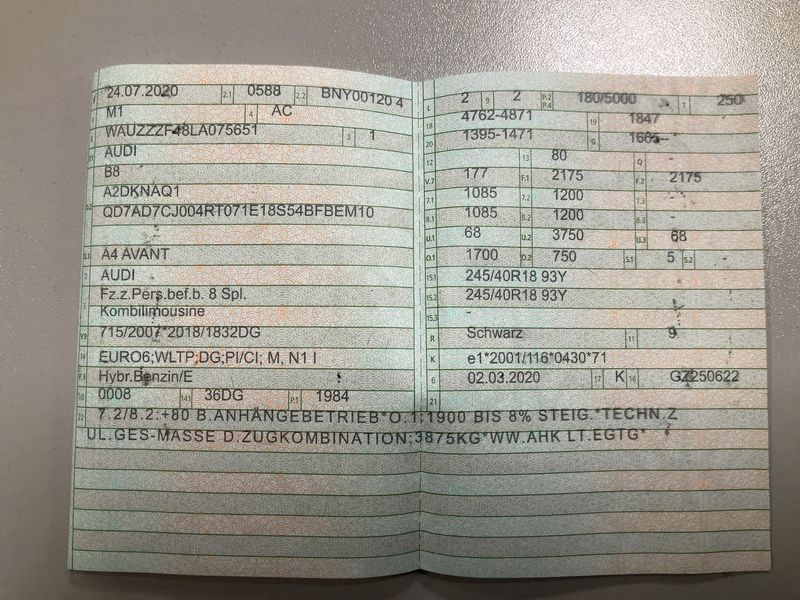 24.07.2020 2.1 0588 2.2 BNY00120 4
M1 4 AC
WAUZZZF48LA075651 3 1
AUDI
B8
A2DKNAQ1
QD7AD7CJ004RT071E18S54BFBEM10
A4 AVANT
AUDI
Fz.z.Pers.bef.b. 8 Spl.
Kombilimousine
V.9 715/2007*2018/1832DG
14 EURO6;WLTP;DG;PI/CI; M, N1 I
P.3 Hybr.Benzin/E
10 0008 14.1 36DG P.1 1984
L 2 9 2 P.2 P.4 180/5000 T 250
18 4762-4871 19 1847
20 1395-1471 G 1605--
12 13 80 Q
V.7 177 F.1 2175 F.2 2175
7.1 1085 7.2 1200 7.3 -
8.1 1085 8.2 1200 8.3 -
U.1 68 U.2 3750 U.3 68
O.1 1700 O.2 750 S.1 5 S.2 -
15.1 245/40R18 93Y
15.2 245/40R18 93Y
15.3 -
R Schwarz 11 9
K e1*2001/116*0430*71
6 02.03.2020 17 K 16 GZ250622
21
22 7.2/8.2:+80 B.ANHÄNGEBETRIEB*O.1:1900 BIS 8% STEIG.*TECHN.Z
UL.GES-MASSE D.ZUGKOMBINATION:3875KG*WW.AHK LT.EGTG*